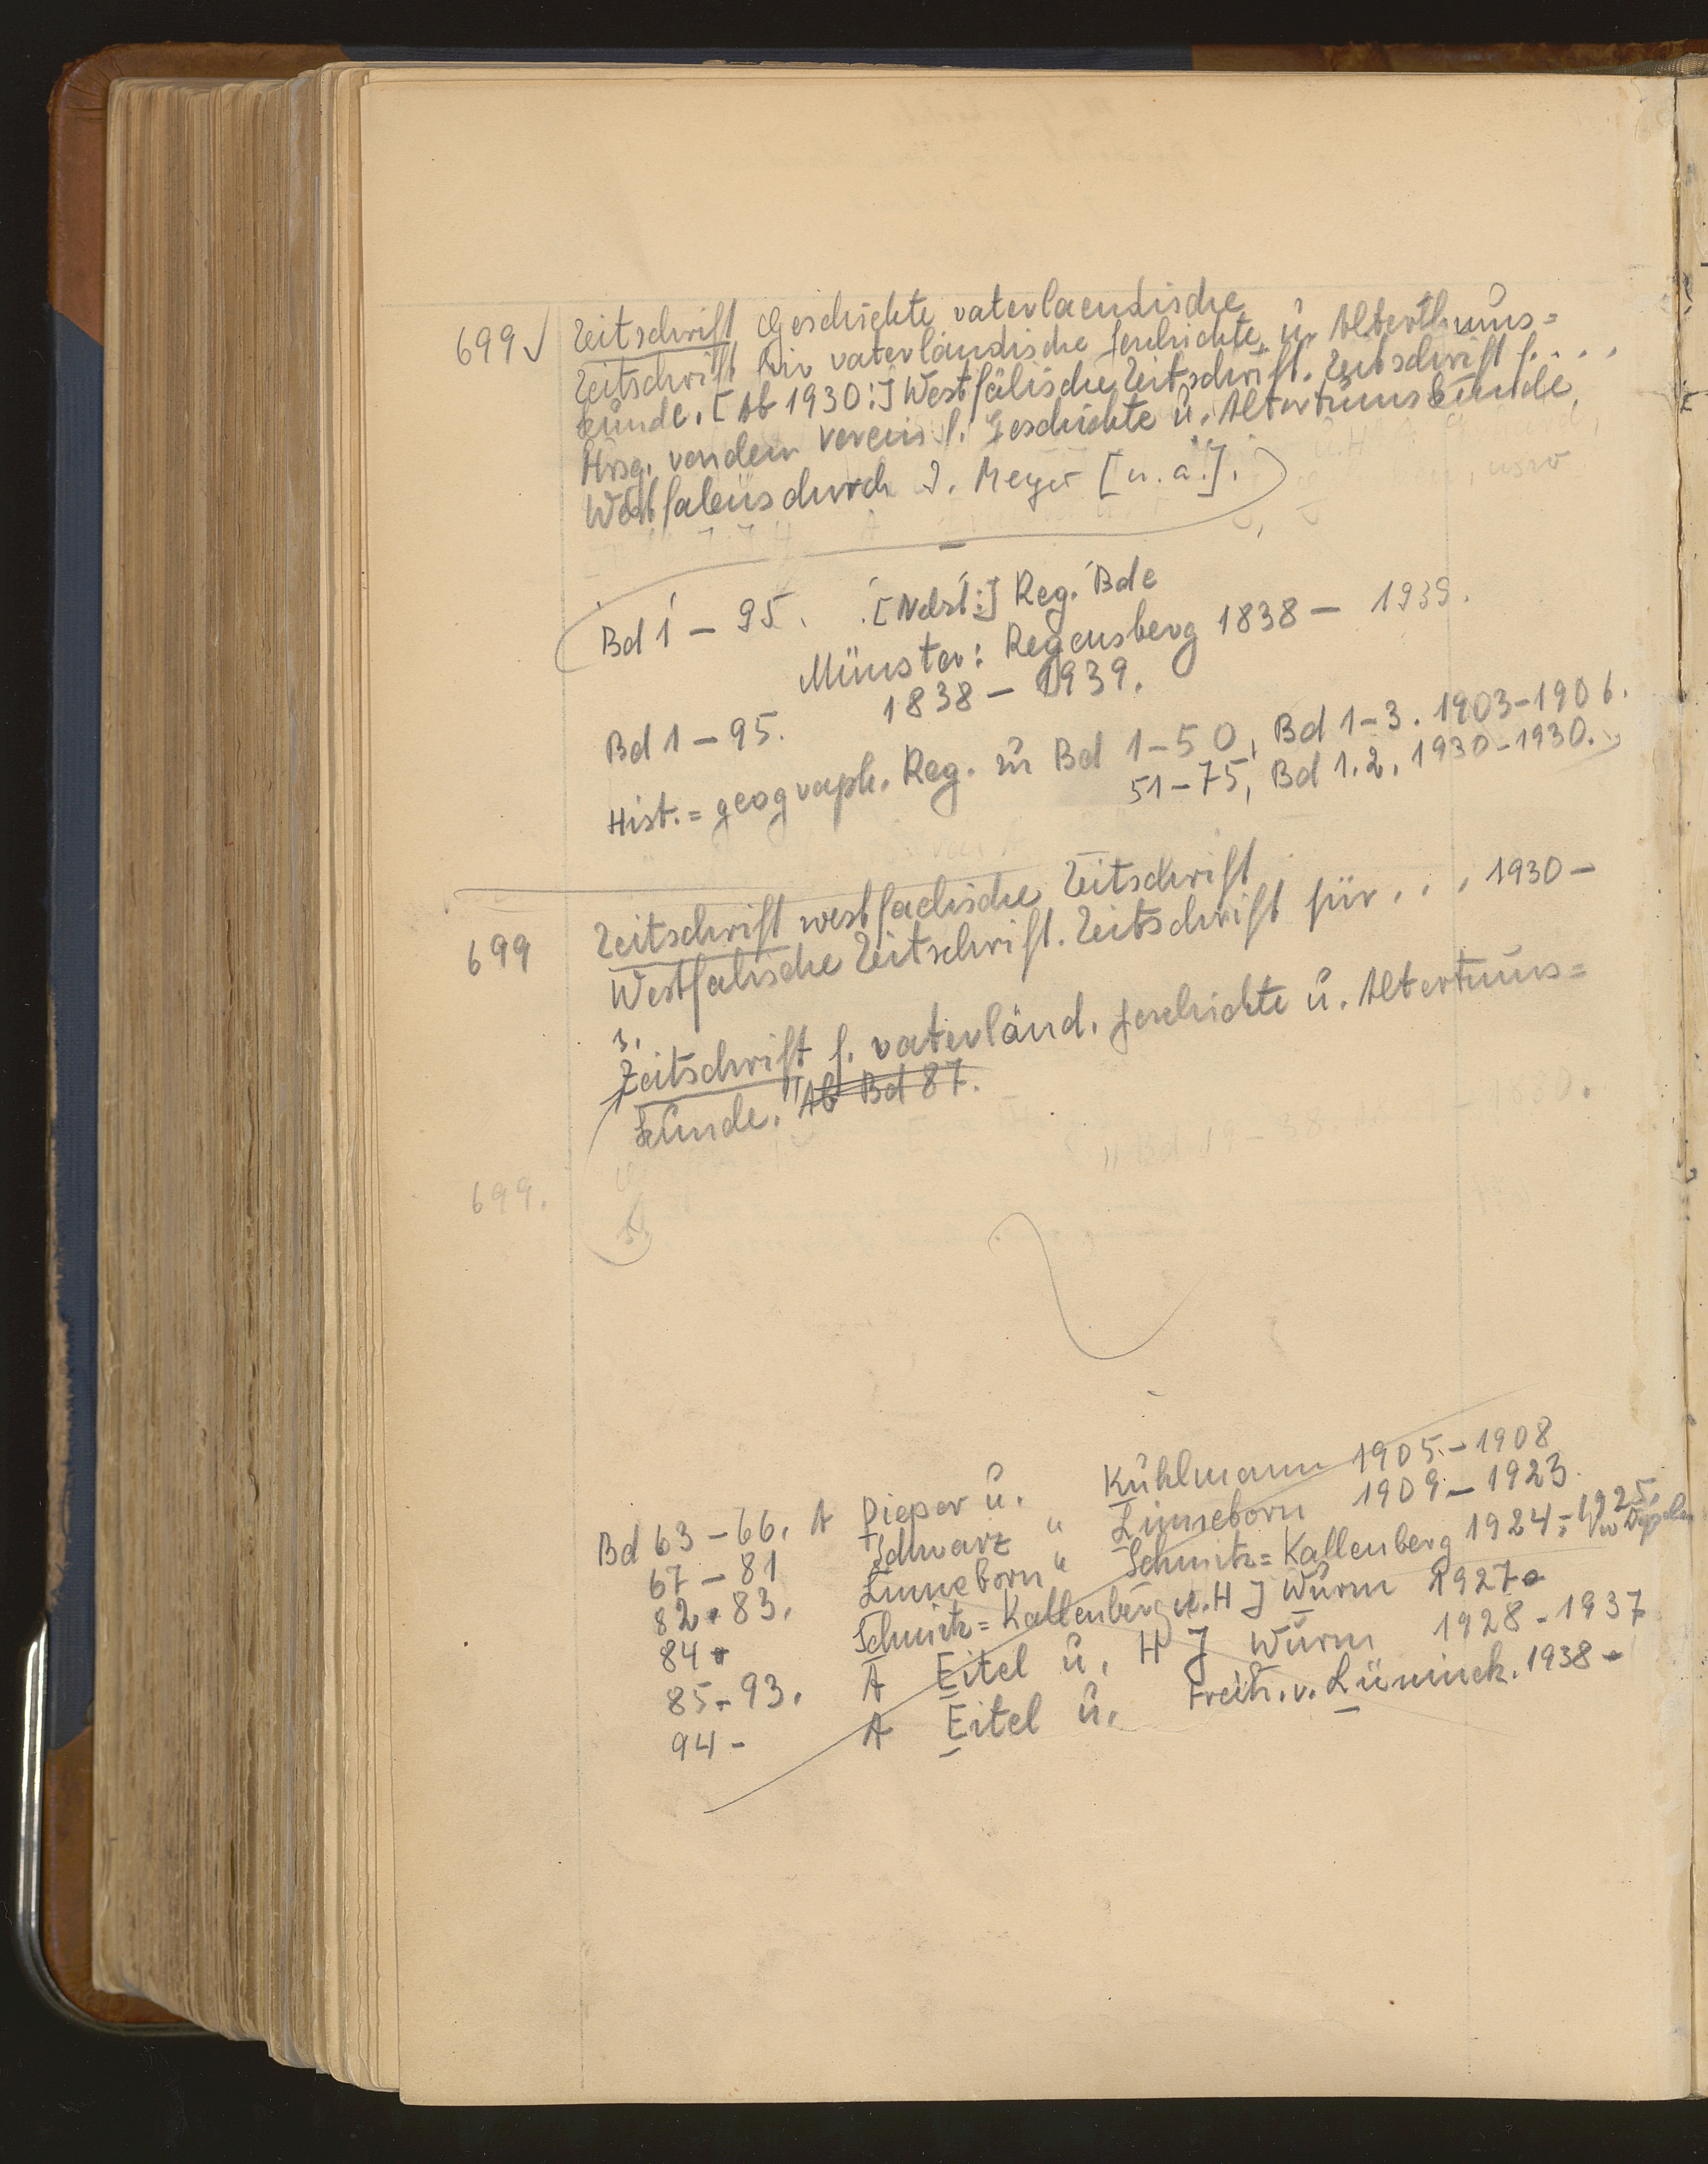 699 Zeitschrift Geschichte vaterlaendische
Zeitschrift für vaterländische Geschichte u. Alterthums=
kunde. [Ab 1930:] Westfälische Zeitschrift. Zeitschrift f. . . .
Hrsg. von dem Verein f. Geschichte u. Altertumskunde
Westfalens durch I. Meyer [u. a.].
Bd 1 – 95. [Nebst:] Reg. Bde
Münster: Regensberg 1838 – 1939.
Bd 1 – 95. 1838 – 1939.
Hist.= geograph. Reg. zu Bd 1–50, Bd 1–3. 1903–1906.
51–75, Bd 1.2. 1930–1930.
699 Zeitschrift westfaelische Zeitschrift
Westfälische Zeitschrift. Zeitschrift für . . . 1930 –
s.
Zeitschrift f. vaterländ. Geschichte u. Altertums=
kunde. Ab Bd 87.
699.
Bd 63 – 66. A Pieper u. Kuhlmann 1905.–1908
67 – 81 Schwarz " Linneborn 1909 – 1923
82. 83. Linneborn " Schmitz=Kallenberg 1924–1925.
84 Schmitz=Kallenberg u. H J Wurm 1927
85 – 93. A Eitel u. H J Wurm 1928 - 1937
94 – A Eitel u. Freih. v. Lüninck. 1938 –